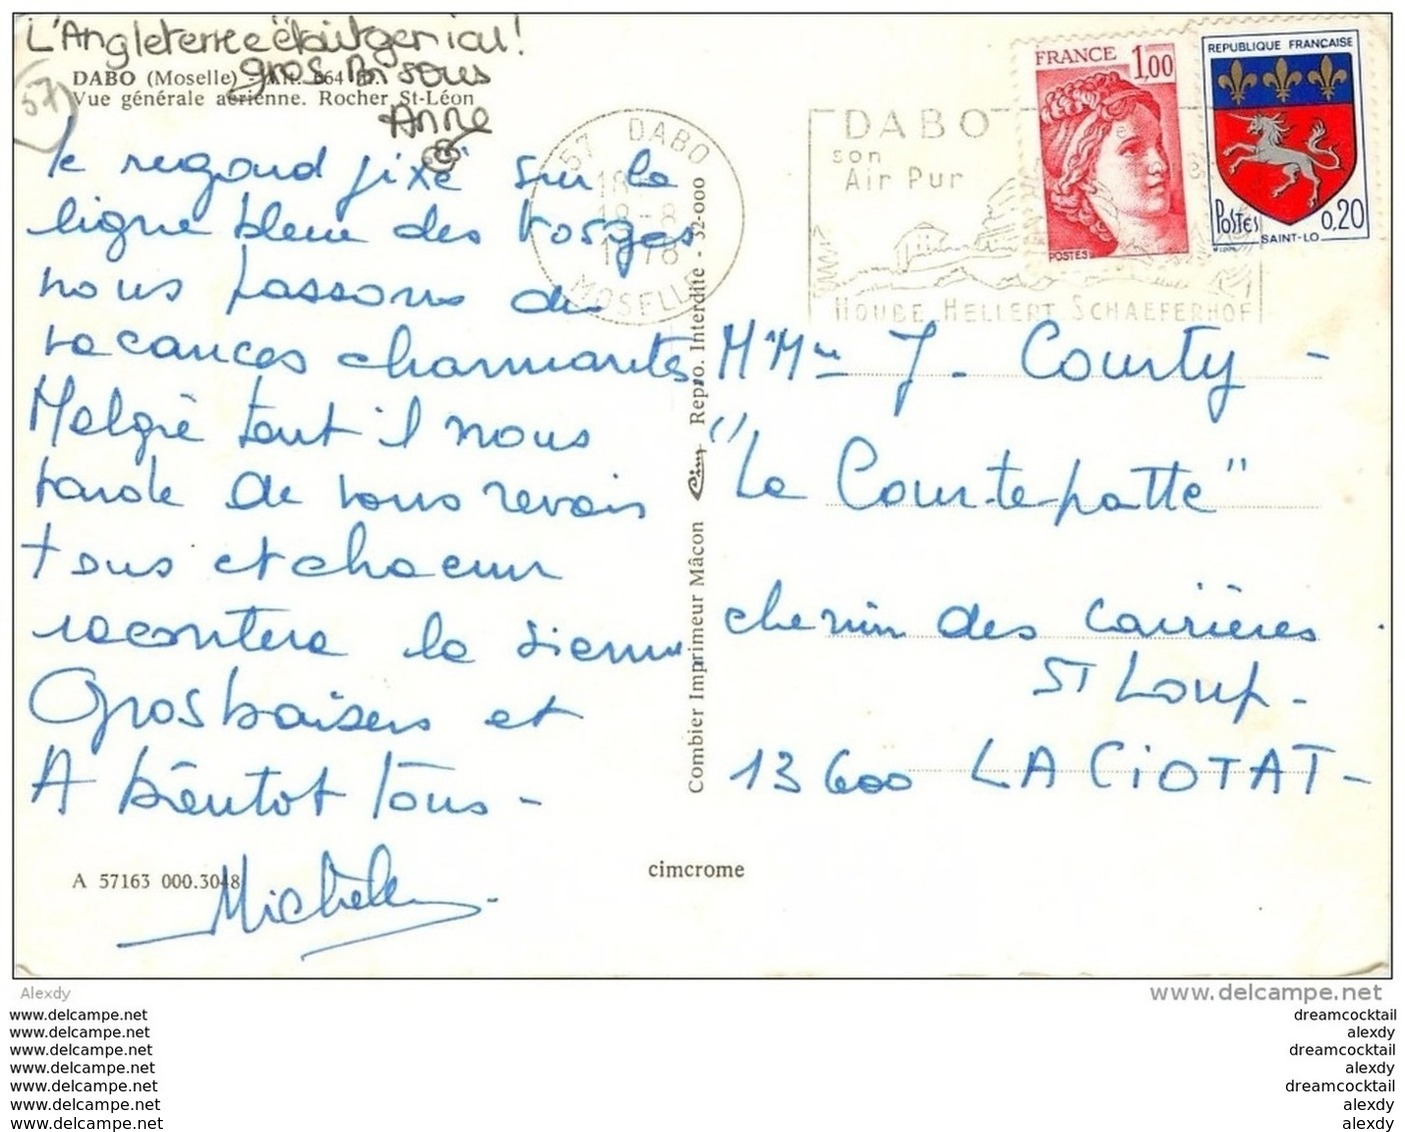 L'Angleterre était genial!
gros Bisous
Anne
DABO (Moselle) - Alt. 664 m.
Vue générale aérienne. Rocher St-Léon
57
le regard fixé sur la
ligne bleue des Vosges
nous passons des
vacances charmantes
Malgré tout il nous
tarde de vous revoir
tous et chacun
racontera la sienne
Gros baisers et
A bientot Tous -
Michele
A 57163 000.3048
cimcrome
Combier Imprimeur Mâcon Cim Repro. Interdite - 52-000
57 DABO
18-8
1978
MOSELLE
DABO
son
Air Pur
HOUBE HELLERT SCHAEFERHOF
FRANCE 1,00
POSTES
REPUBLIQUE FRANÇAISE
Postes 0,20
SAINT-LO
M Mme J. Courty -
"La Courtepatte"
chemin des Carrières.
ST Loup -
13600 LA CIOTAT -
Alexdy
www.delcampe.net
www.delcampe.net
www.delcampe.net
www.delcampe.net
www.delcampe.net
www.delcampe.net
www.delcampe.net
www.delcampe.net
dreamcocktail
alexdy
dreamcocktail
alexdy
dreamcocktail
alexdy
alexdy